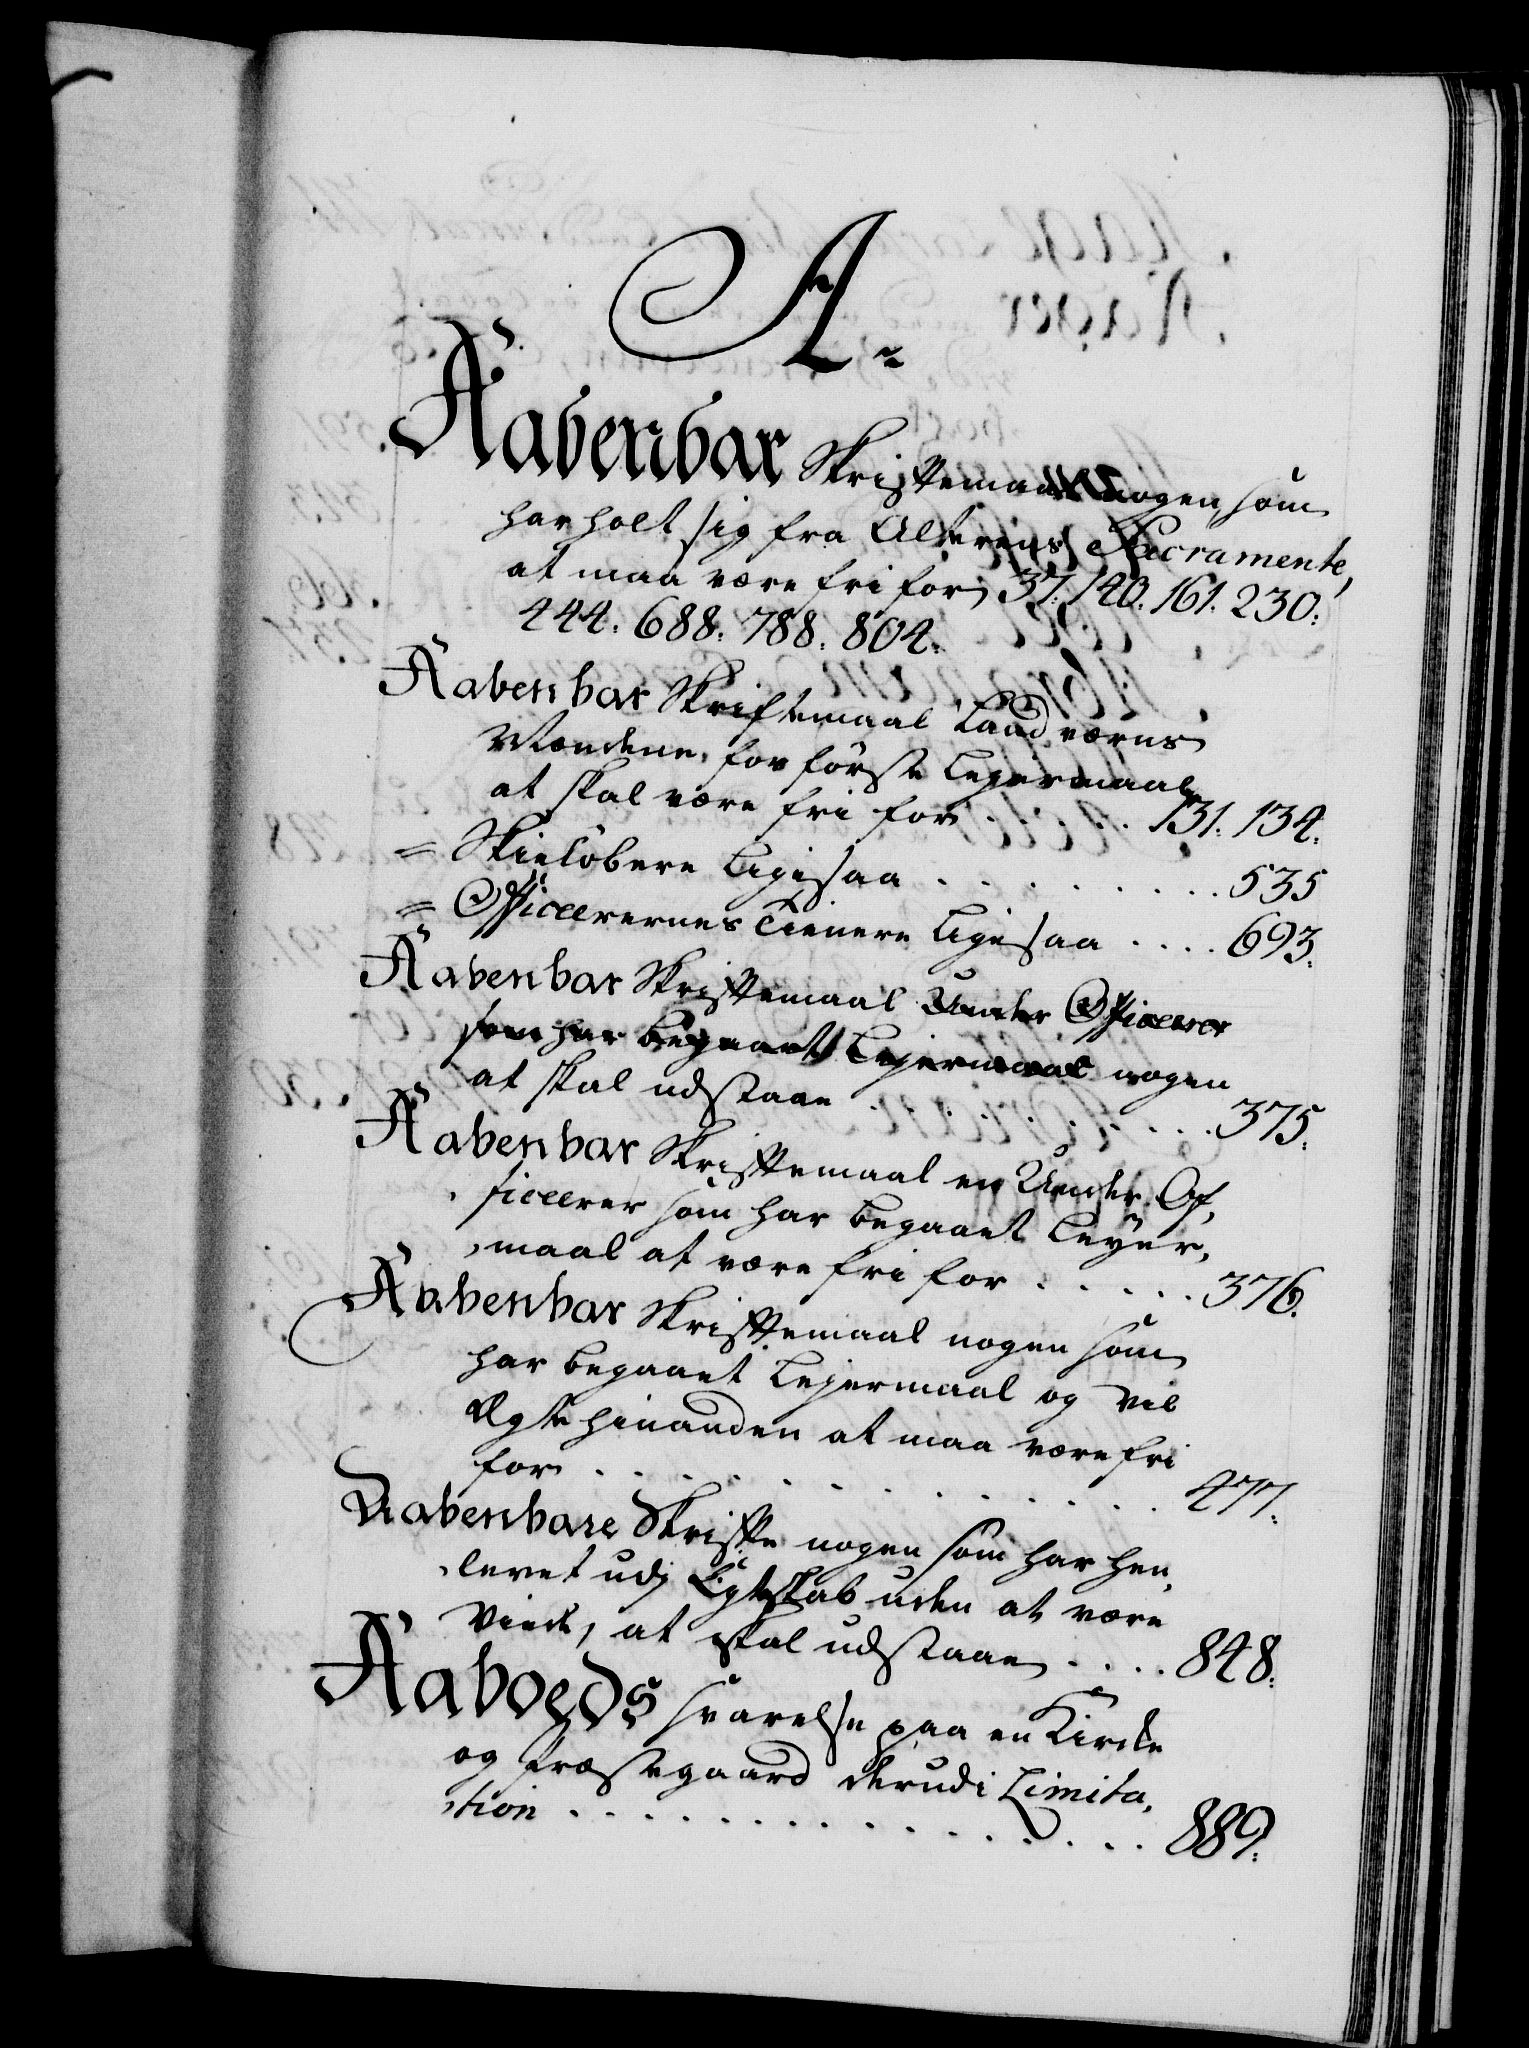 A.
Aabenbar Skriftemaal nogen som
har holt sig fra Alterens Sacramente,
at maa være fri for 37. 140. 161. 230.
444. 688. 788. 804.
Aabenbar Skriftemaal Land værns
Mændene, for første Lejermaal
at skal være fri for . . . . . 131. 134.
= Skieløbere ligesaa . . . . . . . . 535
= Officerernes Tienere ligesaa . . . . 693.
Aabenbar Skriftemaal Under Officerer
som har begaaet Lejermaal nogen
at skal udstaae . . . . . . . . 375.
Aabenbar Skriftemaal en Under Of,
ficerer som har begaaet Leyer,
maal at være fri for . . . . . 376.
Aabenbar Skriftemaal nogen som
har begaaet Lejermaal og vil
Ægte hinanden at maa være fri
for . . . . . . . . . . . . 477.
Aabenbare Skrifte nogen som har hen,
levet udj Egteskab uden at være
Viede, at skal udstaae . . . . 848.
Aaboeds svarelse paa en Kircke
og Præstegaard derudi Limita,
tion . . . . . . . . . . . . 889.